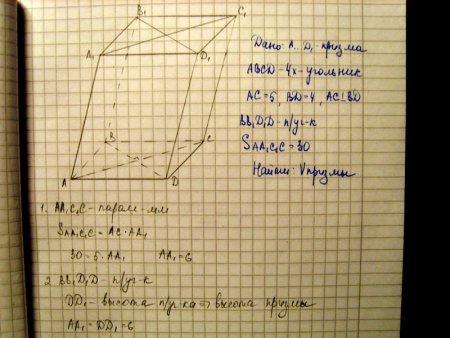 B₁
C₁
A₁
D₁
B
C
A
D
Дано: A...D₁ - призма
ABCD - 4х-угольник
AC=5, BD=4, AC⊥BD
BB₁D₁D - п/уг-к
SAA₁C₁C = 30
Найти: Vпризмы
1. AA₁C₁C - парал-мм
SAA₁C₁C = AC·AA₁
30=5·AA₁ AA₁=6
2. BB₁D₁D - п/уг-к
DD₁ - высота п/уг-ка => высота призмы
AA₁ = DD₁ = 6